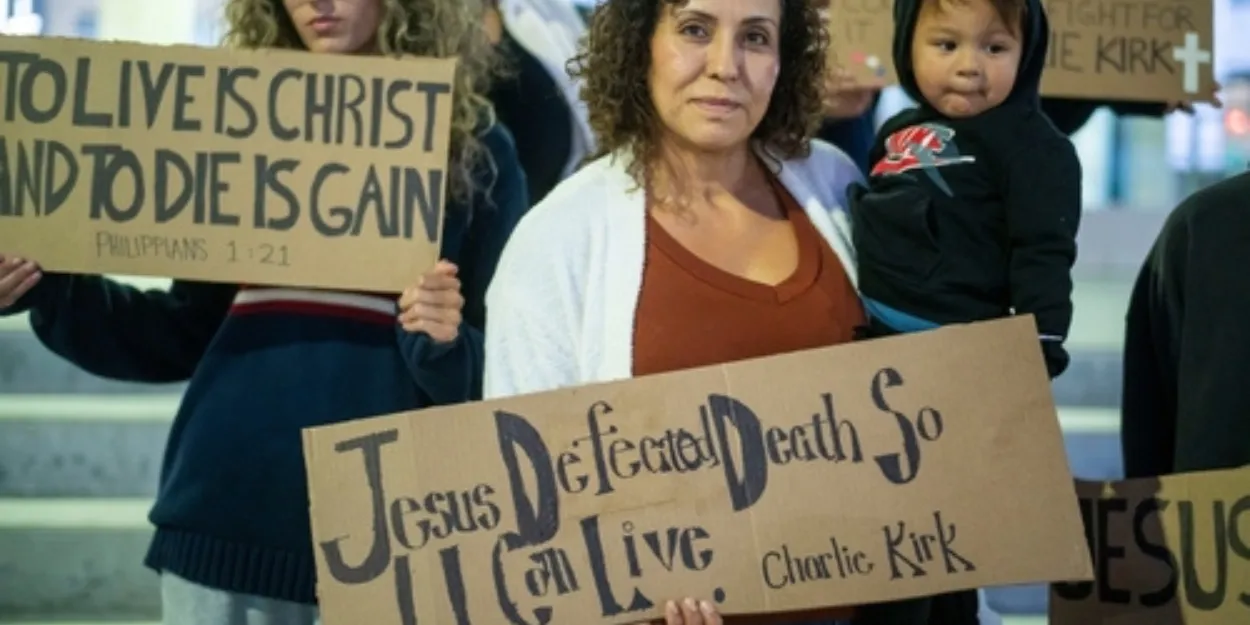 TO LIVE IS CHRIST
AND TO DIE IS GAIN
PHILIPPIANS 1:21
IT
FIGHT FOR
KIRK
Jesus Defeated Death So
U Can Live. Charlie Kirk
JESUS